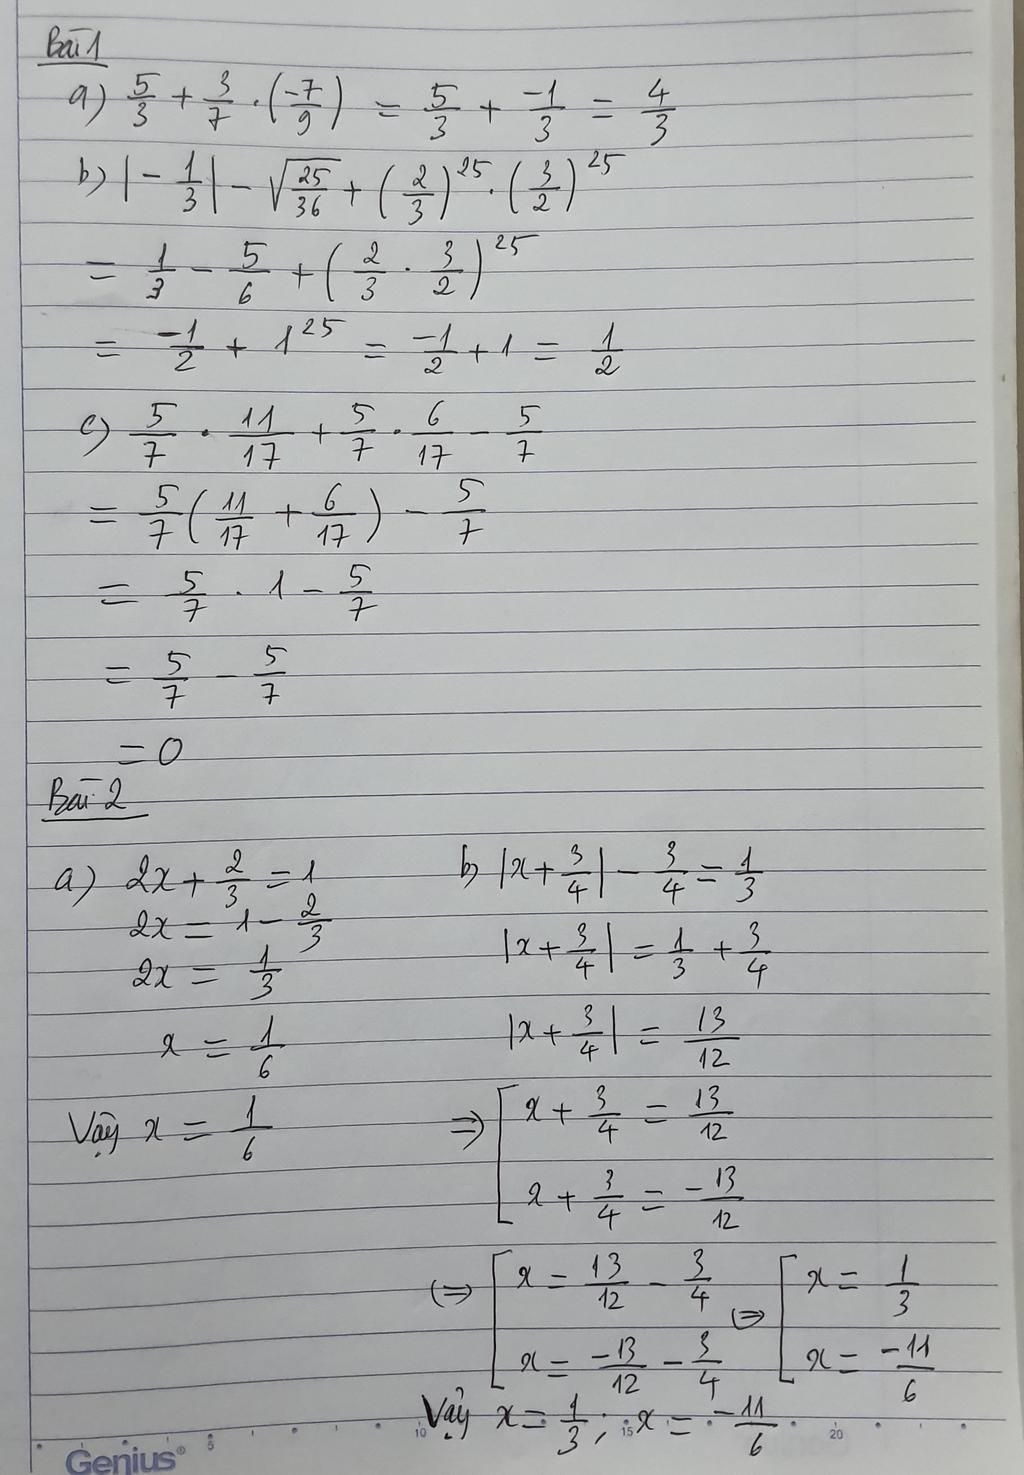 Bài 1
a) 5/3 + 3/7 . (-7/9) = 5/3 + -1/3 = 4/3
b) |-1/3| - √(25/36) + (2/3)^25 . (3/2)^25
= 1/3 - 5/6 + (2/3 . 3/2)^25
= -1/2 + 1^25 = -1/2 + 1 = 1/2
c) 5/7 . 11/17 + 5/7 . 6/17 - 5/7
= 5/7 (11/17 + 6/17) - 5/7
= 5/7 . 1 - 5/7
= 5/7 - 5/7
= 0
Bài 2
a) 2x + 2/3 = 1
2x = 1 - 2/3
2x = 1/3
x = 1/6
Vậy x = 1/6
b) |x + 3/4| - 3/4 = 1/3
|x + 3/4| = 1/3 + 3/4
|x + 3/4| = 13/12
⇒ [ x + 3/4 = 13/12
x + 3/4 = -13/12
⇔ [ x = 13/12 - 3/4 ⇔ [ x = 1/3
x = -13/12 - 3/4 x = -11/6
Vậy x = 1/3 ; x = -11/6
Genius® 5 10 15 20